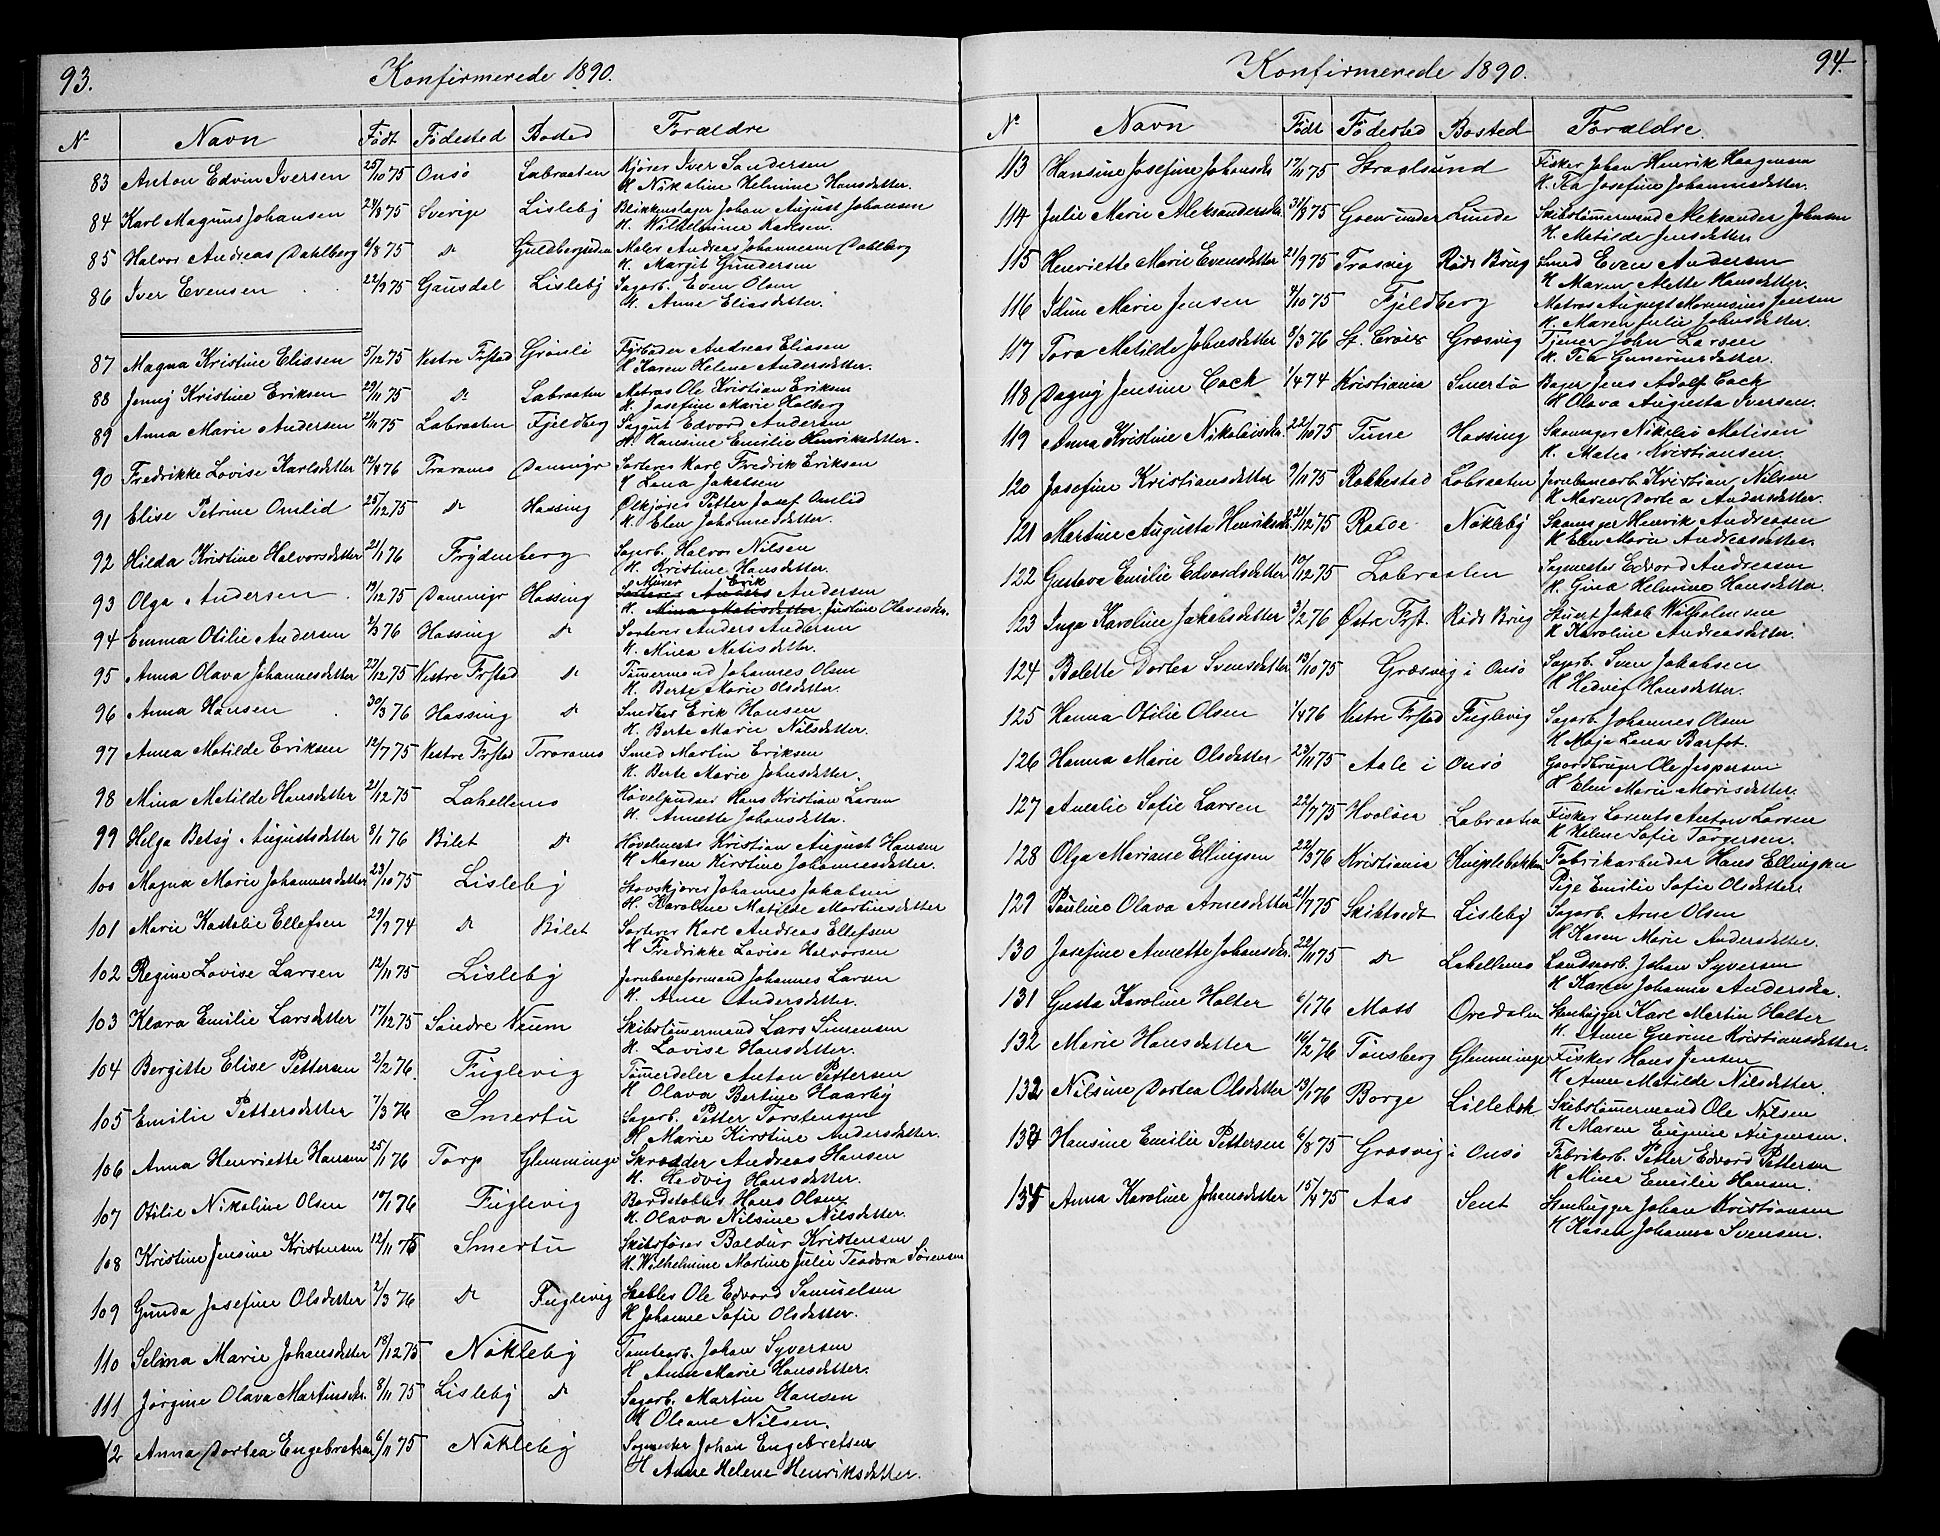 93.
Konfirmerede 1890.
No Navn Født Fødested Bosted Forældre
83 Anton Edvin Iversen 25/10 75 Onsø Labraaten Kjører Iver Sandersen
H. Nikoline Helmine Hansdetter.
84 Karl Magnus Johansen 24/8 75 Sverige Lisleby Blikkenslager Johan August Johansen
H. Wilhelmine Karlsen.
85 Halvor Andreas Dahlberg 9/8 75 do Guldbergsiden Maler Andreas Johannesen Dahlberg
H. Margit Gundersen
86 Iver Evensen 22/9 75 Gausdal Lisleby Sagarb. Even Olsen
H. Anne Eliasdetter.
87 Magna Kristine Eliasen 5/12 75 Vestre Frstad Grønli Fyrbøder Andreas Eliasen
H Karen Helene Andersdetter.
88 Jenny Kristine Eriksen 29/11 75 do Labraaten Matros Ole Kristian Eriksen
H. Josefine Marie Holberg
89 Anna Marie Andersen 21/11 75 Labraaten Fjeldberg Edvard Andersen
H. Hansine Emilie Henriksdetter.
90 Fredrikke Lovise Karlsdetter 12/4 76 Traraens Dammyr Sorterer Karl Fredrik Eriksen
H Lena Jakobsen
91 Elise Petrine Omlid 25/12 75 do Hassing Ølkjører Petter Josef Omlid
H. Elen Johannesdetter.
92 Hilda Kristine Halvorsdetter 21/1 76 Frydenberg Sagarb. Halvor Nilsen
H. Kristine Hansdetter.
93 Olga Andersen 19/12 75 Dammyr Hassing Murer Erik Andersen
H. Mina Matisdetter. Justine Olavesdr.
94 Emma Otilie Andersen 2/3 76 Hassing do Sorterer Anders Andersen
H. Mina Matisdetter.
95 Anna Olava Johannesdetter 23/12 75 Vestre Frstad do Tømermand Johannes Olsen
H. Berte Marie Olsdetter.
96 Anna Hansen 30/3 76 Hassing do Erik Hansen
H. Berte Marie Nilsdetter.
97 Anna Matilde Eriksen 12/7 75 Vestre Frstad Traraens Smed Martin Eriksen
H. Berte Marie Johnsdetter.
98 Mina Matilde Hansdetter 21/12 75 Lahellens Høvelpudser Hans Kristian Larsen
H. Annette Johansdetter.
99 Helga Betsy Augustsdetter 8/1 76 Bilet do Høvelmester Kristian August Hansen
H Maren Kirstine Johannesdetter.
100 Magna Marie Johannesdetter 23/10 75 Lisleby Stavskjører Johannes Jakobsen
H. Karoline Matilde Martinsdetter
101 Marie Kattalie Ellefsen 29/9 74 do Bilet Sorterer Karl Andreas Ellefsen
H Fredrikke Lovise Halvorsen
102 Regine Lovise Larsen 12/11 75 Lisleby Jernbaneformand Johannes Larsen
H. Anne Andersdetter.
103 Klara Emilie Larsdetter 17/12 75 Søndre Neum Skibstømermand Lars Simensen
H. Lovise Hansdetter.
104 Bergitte Elise Pettersen 2/2 76. Fuglevig Tømerdeler Anton Pettersen
H Olava Bertine Haarby
105 Emilie Pettersdetter 7/3 76 Smertu Sagarb. Petter Torstensen
H Marie Kirstine Andersdetter.
106 Anna Henriette Hansen 25/1 76 Torp Glemminge Skrædder Andreas Hansen
H. Hedvig Hansdetter.
107 Otilie Nikoline Olsen 19/1 76 Fuglevig Bordstabler Hans Olsen
H. Olava Nilsine Nilsdetter.
108 Kristine Jensine Kristensen 12/11 75 Smertu Skibsfører Baldur Kristensen
H. Wilhelmine Martine Julie Teodora Sørensen
109 Gunda Josefine Olsdetter 2/3 76 do Fuglevig Stabler Ole Edvard Samuelsen
H Johanne Sofie Olsdetter.
110 Selma Marie Johansdetter 18/12 75 Nøkleby Tomtearb. Johan Syversen
H Anne Marie Hansdetter.
111 Jørgine Olava Martinsdr. 8/11 75 Lisleby do Sagarb. Martin Hansen
H Oleane Nilsen.
12 Anna Dortea Engebretsen 6/11 75 Nøkleby Sagmester Johan Engebretsen
H Anne Helene Henriksdetter.
94.
Konfirmerede 1890.
No Navn Født Fødested Bosted Forældre.
113 Hansine Josefine Johansdr 17/11 75 Straalsund Fisker Johan Henrik Haagensen
H. Tea Josefine Johannesdetter.
114 Julie Marie Aleksandersdr. 31/8 75 Goen under Lunde Skibstømermand Aleksander Johnsen
H. Matilde Jensdetter
115 Henriette Marie Evensdetter 21/9 75 Trosvig Røds Brug Smed Even Andersen
H Maren Alette Hansdetter.
116 Idun Marie Jensen 4/10 75 Fjeldberg Matros August Marensius Jensen
H. Maren Julie Johnsdetter.
117 Tora Matilde Johnsdetter 8/3 76 St. Croix Græsvig Tjener John Larsen
H. Tea Gunerusdetter.
118 Dagny Jensine Cock 1/4 74 Kristiania Smertu Bager Jens Adolf Cock
H Olava Augusta Iversen.
119 Anna Kristine Nikolaisdr. 22/10 75 Tune Hassing Skomager Nikolai Matisen
H. Matea Kristiansen.
120 Josefine Kristiansdetter 9/11 75 Rakkestad Labraaten Jernbanearb. Kristian Nilsen
H. Maren Dortea Andersdetter.
121 Martine Augusta Henriksdr 21/12 75 Raade Nøkleby Skomager Henrik Andreasen
H Elen Marie Andreasdetter.
122 Gustava Emilie Edvardsdetter 10/12 75 Labraaten Sagmester Edvard Andreasen
H. Gina Helmine Hansdetter.
123 Inga Karoline Jakobsdetter 3/2 76 Østre Frst. Røds Brug Stuert Jakob Wilhelmsen
H Karoline Andreasdetter.
124 Bolette Dortea Svensdetter 13/10 75 Græsvig i Onsø Sagarb. Sven Jakobsen
H Hedvig Hansdetter.
125 Hanna Otilie Olsen 1/4 76 Vestre Frstad Fuglevig Sagarb. Johannes Olsen
H Maja Lena Barfot.
126 Hanna Marie Olsdetter 23/11 75 Aale i Onsø Gaardbruger Ole Jespersen
H Elen Marie Morisdetter.
127 Amalie Sofie Larsen 22/7 75 Hvaløer Labraaten Fisker Lorents Anton Larsen
H Helene Sofie Torgersen.
128 Olga Mariane Ellingsen 22/3 76 Kristiania Kniplebakken Fabrikarbeider Hans Ellingsen
Pige Emilie Sofie Olsdetter.
129 Pauline Olava Arnesdetter 21/7 75 Skibtvedt Lisleby Sagarb. Arne Olsen
H Karen Marie Andersdetter.
130 Josefine Annette Johansdr. 22/11 75 do Lahellens Landarb. Johan Syversen
H Karen Johanne Andersdr.
131 Gusta Karoline Holter 6/1 76 Moss Oredalen Stenhugger Karl Martin Holter
H. Anne Gurine Kristiansdetter.
132 Marie Hansdetter 16/2 76 Tønsberg Glemminge Fisker Hans Jensen
H Anne Matilde Nilsdetter.
132 Nilsine Dortea Olsdetter 13/1 76 Borge Lillebæk Skibstømermand Ole Nilsen
H Maren Eugenie Augensen.
134 Hansine Emilie Pettersen 6/8 75 Græsvig i Onsø Fabrikarb. Petter Edvard Pettersen
H Mina Emilie Hansen.
135 Anna Karoline Johansdetter 15/4 75 Aas Sent Stenhugger Johan Kristiansen
H Karen Johanne Svensen.